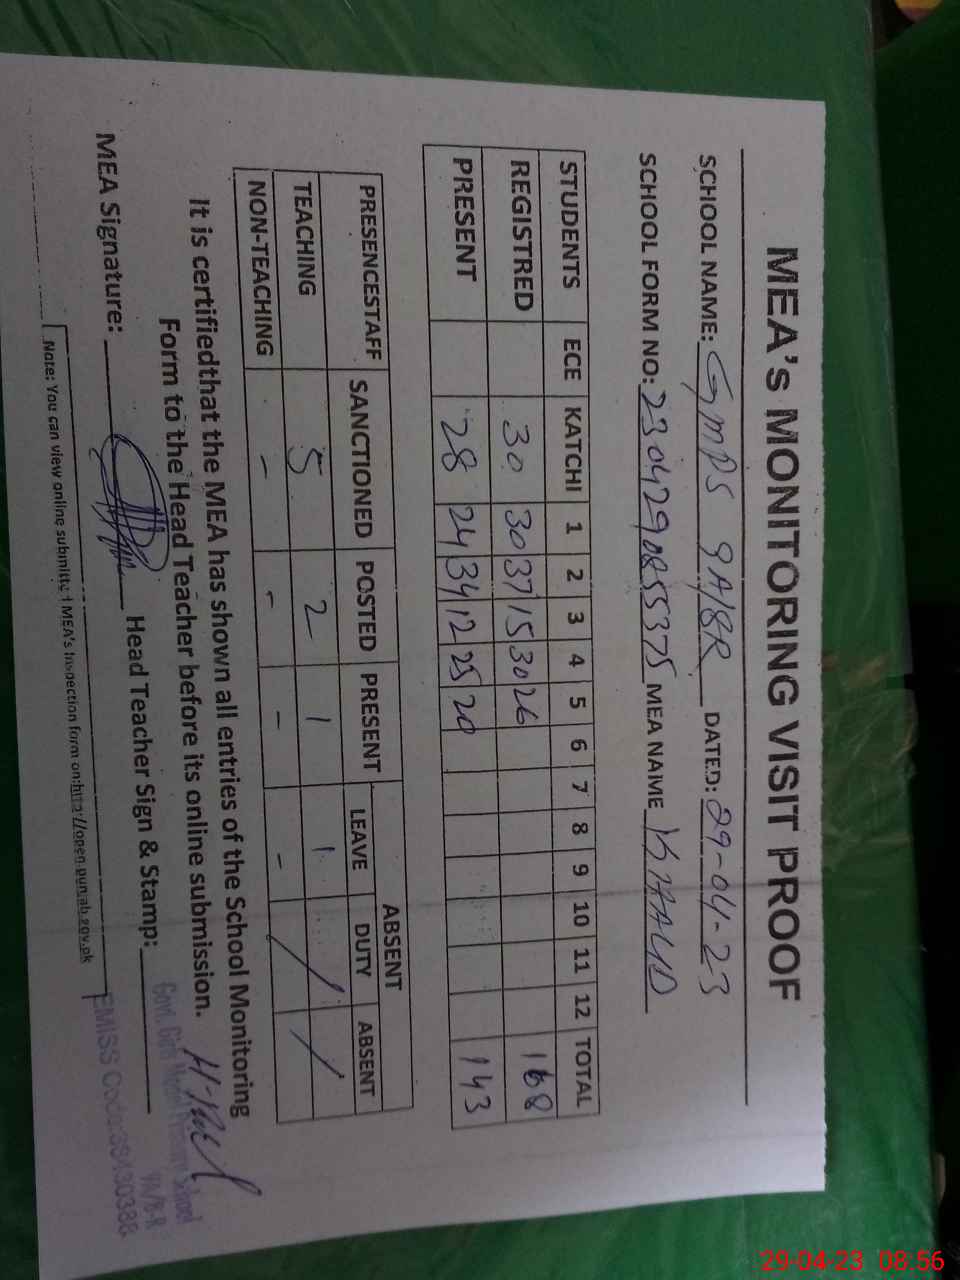 MEA's MONITORING VISIT PROOF
SCHOOL NAME: GMPS 9A/8R DATED: 29-04-23
SCHOOL FORM NO: 2304290855375 MEA NAME KHALID
STUDENTS ECE KATCHI 1 2 3 4 5 6 7 8 9 10 11 12 TOTAL
REGISTRED 30 30 37 15 30 26 168
PRESENT 28 24 34 12 25 20 143
ABSENT
PRESENCESTAFF SANCTIONED POSTED PRESENT LEAVE DUTY ABSENT
TEACHING 5 2 1 1 / /
NON-TEACHING - - - - /
It is certifiedthat the MEA has shown all entries of the School Monitoring
Form to the Head Teacher before its online submission.
MEA Signature: Head Teacher Sign & Stamp:
Govt. Girls Model Primary School
9A/8-R
EMISS Code:
Note: You can view online submitted MEA's Inspection form on:http://open.punjab.gov.pk
29-04-23 08:56